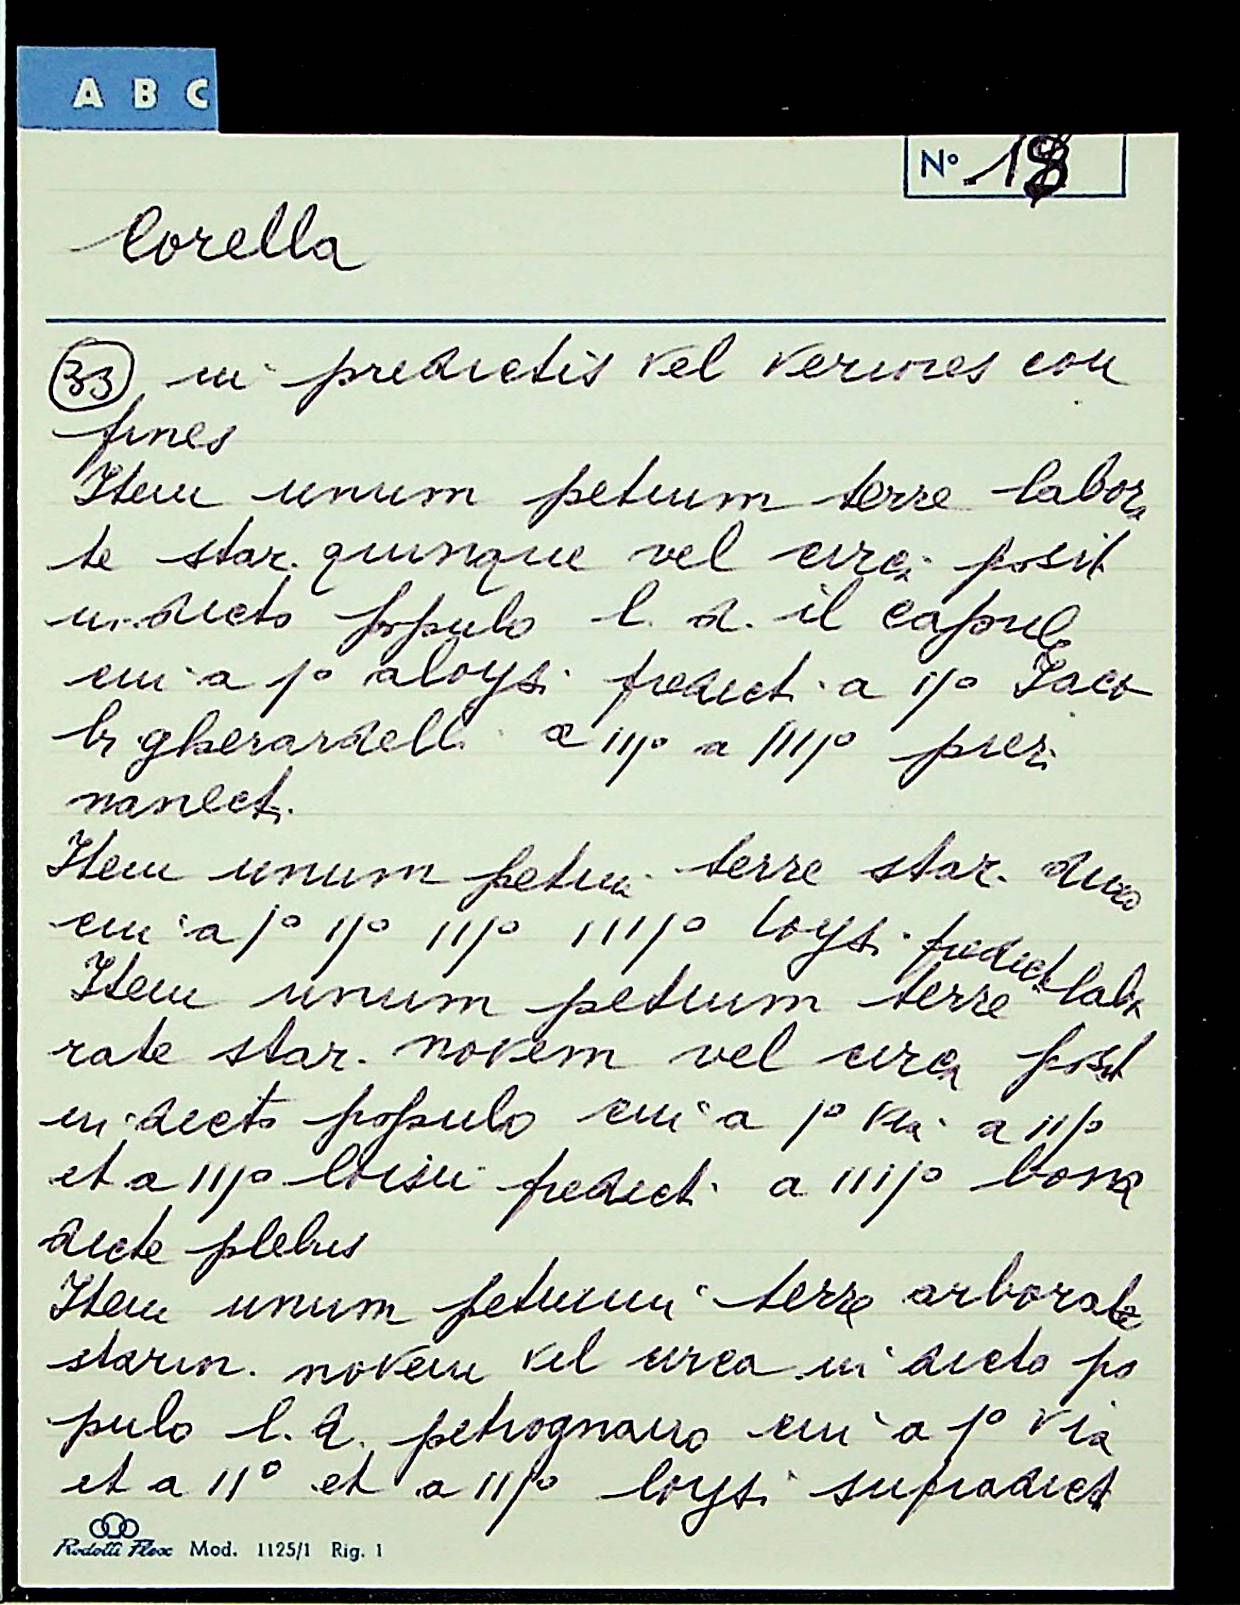 A B C
N° 18
Corella
33 in predictis vel veriores con
fines
Item unum petium terre labora
te star. quinque vel circa posit
in dicto populo l. d. il
cui a jº aloysi predict. a ijº Jaco
bi gherardell. a iijº a iiijº
Item unum petium terre star. duo
cui a jº ijº iijº iiijº loysi predict
Item unum petium terre labo
rate star. novem vel circa posit
in dicto populo cui a jº via a ijº
et a iijº loisii predict. a iiijº bona
dicte plebis
Item unum petium terre arborate
starin. novem vel circa in dicto po
pulo l. d. petrognano cui a jº via
et a IIº et a iijº loysi supradict
Rodotti Flex Mod. 1125/1 Rig. 1